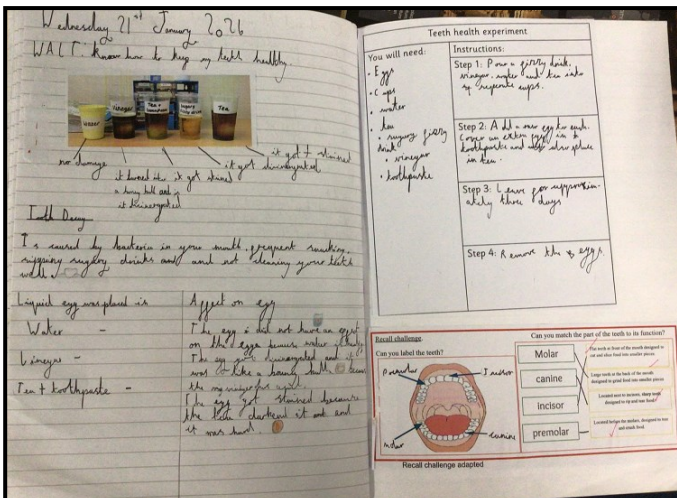 Wednesday 21st January 2026
WALT: Know how to keep my teeth healthy.
water
Vinegar
Tea +
Sugary
fizzy drink
Tea
no damage
it turned like
a bouncy ball and
it disintegrated
it got stained
it got disintegrated
it got stained
Tooth Decay
Is caused by bacteria in your mouth, frequent snacking,
sipping sugary drinks and and not cleaning your teeth
well.
Liquid egg was placed in
Affect on egg
Water -
The egg did not have an effect
on the egg because water is
Vinegar -
The egg got disintegrated and it
was like a bouncy ball because
the vinegar
Tea + toothpaste -
The egg got stained because
the tea darkend it out and
it was hard.
Teeth health experiment
You will need:
• Eggs
• Cups
• water
• tea
• sugary fizzy
drink
• vinegar
• toothpaste
Instructions:
Step 1: Pour a fizzy drink,
vinegar, water and tea into
separate cups.
Step 2: Add a egg to each.
Cover an extra egg in
toothpaste and also place
in tea.
Step 3: Leave for approxim-
ately three days
Step 4: Remove the eggs.
Recall challenge.
Can you label the teeth?
Premolar
Incisor
molar
canine
Can you match the part of the teeth to its function?
Molar
canine
incisor
premolar
The teeth at front of the mouth designed to
cut and slice food into smaller pieces
Large teeth at the back of the mouth
designed to grind food into smaller pieces
Located next to incisors, sharp teeth
designed to rip and tear food
Located before the molars, designed to tear
and crush food.
Recall challenge adapted